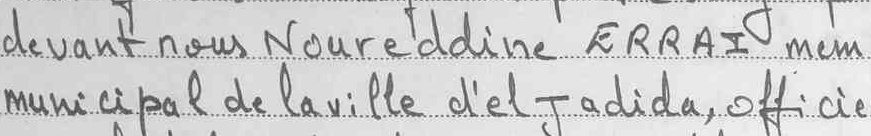 devant nous Noureddine ERRAI mem
municipal de la ville d'el Jadida, officie